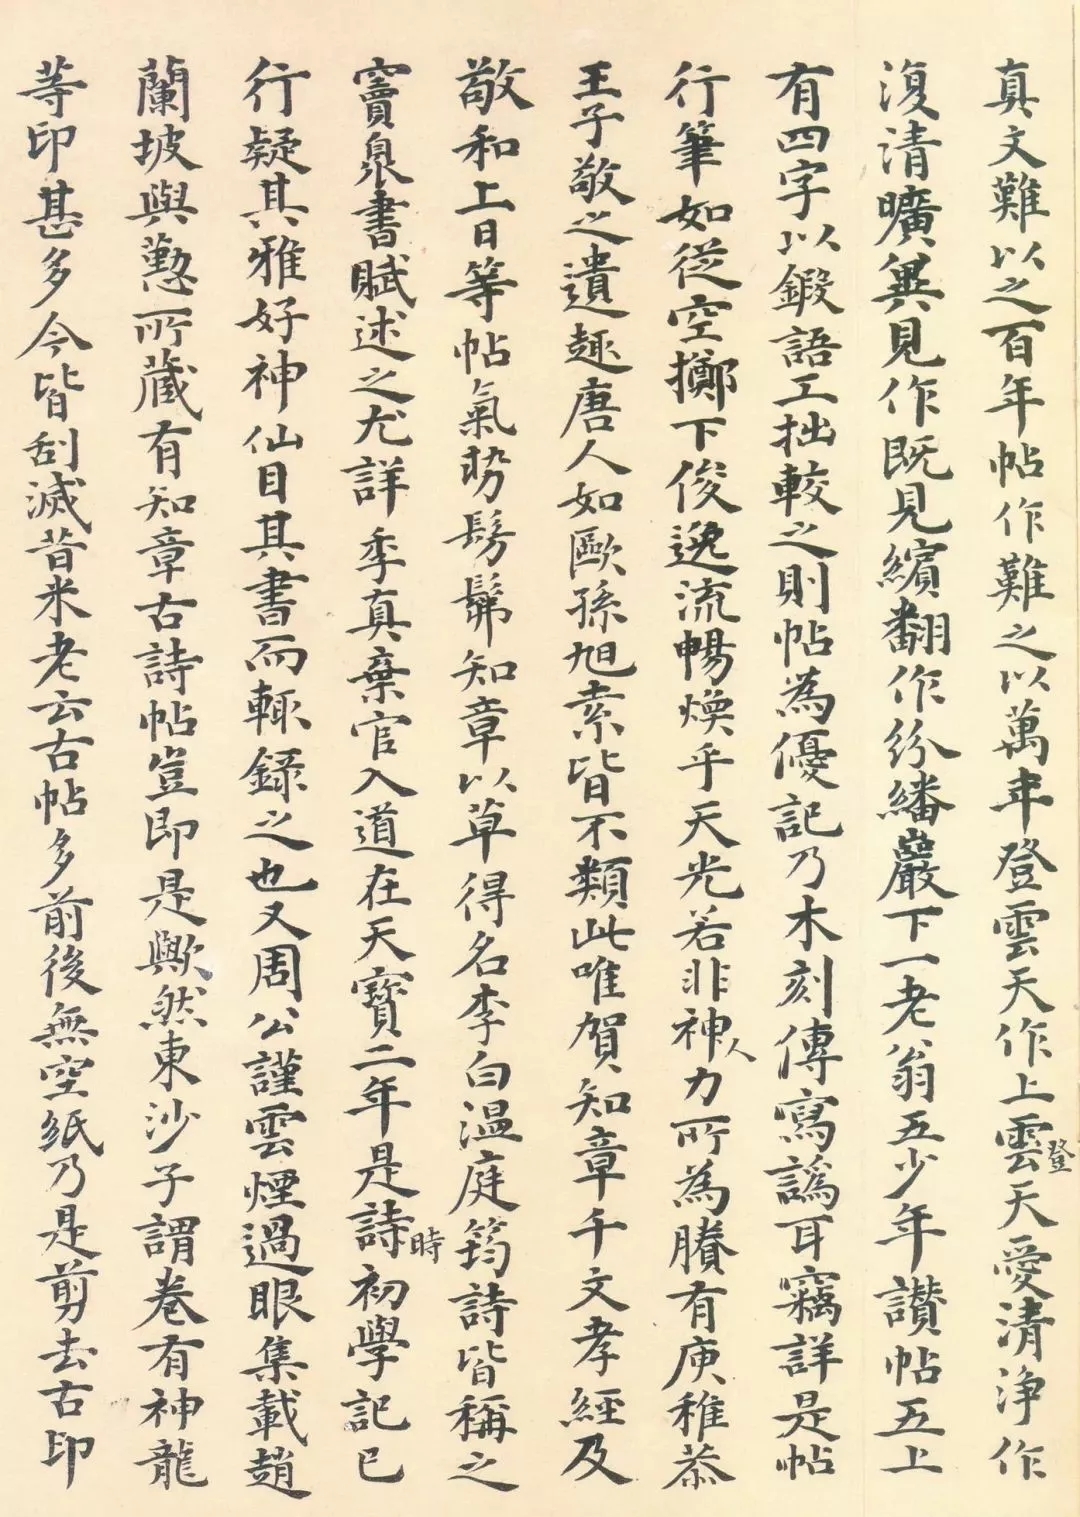 真文難以之百年帖作難之以萬年登雲天作上雲天愛清淨作
登
復清曠異見作既見繽翻作紛繙巖下一老翁五少年讃帖五上
有四字以鍛語工拙較之則帖為優記乃木刻傳寫譌耳竊詳是帖
行筆如從空擲下俊逸流暢煥乎天光若非神力所為賸有庾稚恭
人
王子敬之遺趣唐人如歐孫旭素皆不類此唯賀知章千文孝經及
敬和上日等帖氣勢髣髴知章以草得名李白温庭筠詩皆稱之
竇臮書賦述之尤詳季真棄官入道在天寶二年是詩初學記已
時
行疑其雅好神仙目其書而輒録之也又周公謹雲煙過眼集載趙
蘭坡與懃所藏有知章古詩帖豈即是歟然東沙子謂卷有神龍
等印甚多今皆刮滅昔米老云古帖多前後無空紙乃是剪去古印